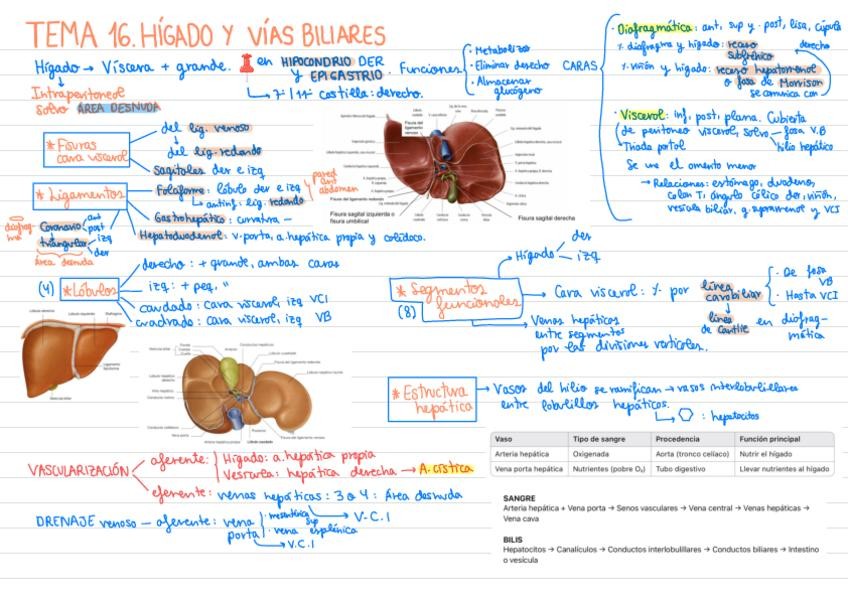 TEMA 16. HÍGADO Y VÍAS BILIARES
Hígado → Víscera + grande. en HIPOCONDRIO DER
y EPIGASTRIO.
↳ 7ª/11ª costilla: derecho.
Intraperitoneal
salvo ÁREA DESNUDA
Funciones
· Metabolizar
· Eliminar desecho
· Almacenar
glucógeno
CARAS
· Diafragmática: ant, sup y post, lisa, cúpula
derecho
% diafragma y hígado: receso
subfrénico
% riñón y hígado: receso hepatorrenal
o fosa de Morrison
se comunica con
· Visceral: inf, post, plana. Cubierta
de peritoneo visceral, salvo fosa V.B
hilio hepático
Triada portal
Se une el omento menor
→ Relaciones: estómago, duodeno,
colon T, ángulo cólico der, riñón,
vesícula biliar, g. suprarrenal y VCI
* Fisuras
cara visceral
del lig. venoso
del lig. redondo
sagitales der e izq
* Ligamentos
Falciforme: lóbulo der e izq
↳ ant inf. lig. redondo
pared
ant
abdomen
Gastrohepático: curvatura −
Hepatoduodenal: v. porta, a. hepática propia y colédoco.
diafrag-
ma
Coronario
ant
post
triangular
izq
der
área desnuda
Fisura del
ligamento
venoso
Fisura del ligamento redondo
Fisura sagital izquierda o
fisura umbilical
Fisura sagital derecha
(4) * Lóbulos
derecho: + grande, ambas caras
izq: + peq. "
caudado: cara visceral, izq VCI
cuadrado: cara visceral, izq VB
* Segmentos
funcionales
(8)
Hígado
der
izq
→ Cara visceral: % por línea
cavobiliar
· De fosa
VB
· Hasta VCI
línea
de Cantlie
en diafrag-
mática
→ Venas hepáticas
entre segmentos
por las divisiones verticales.
* Estructura
hepática
→ Vasos del hilio se ramifican → vasos interlobulillares
entre lobulillos hepáticos.
: hepatocitos
VASCULARIZACIÓN
aferente: Hígado: a. hepática propia
Vesícula: hepática derecha → A. cística
eferente: venas hepáticas: 3 o 4: Área desnuda
DRENAJE venoso − aferente: vena
porta
· mesentérica
sup
→ V.C.I
· vena esplénica
→ V.C.I
Vaso Tipo de sangre Procedencia Función principal
Arteria hepática Oxigenada Aorta (tronco celíaco) Nutrir el hígado
Vena porta hepática Nutrientes (pobre O₂) Tubo digestivo Llevar nutrientes al hígado
SANGRE
Arteria hepática + Vena porta → Senos vasculares → Vena central → Venas hepáticas →
Vena cava
BILIS
Hepatocitos → Canalículos → Conductos interlobulillares → Conductos biliares → Intestino
o vesícula